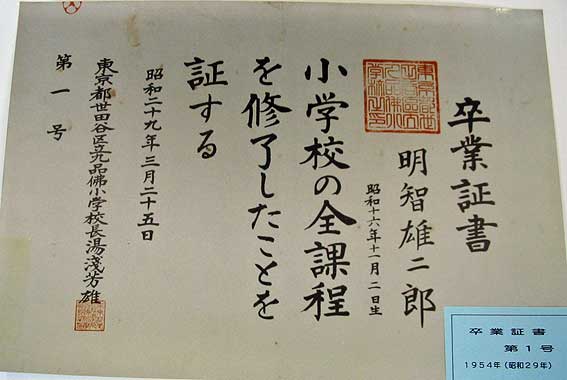 卒業証書
明智雄二郎
昭和十六年十一月二日生
小学校の全課程
を修了したことを
証する
昭和二十九年三月二十五日
東京都世田谷区立九品佛小学校長湯淺芳雄
第一号
卒業証書
第1号
1954年(昭和29年)